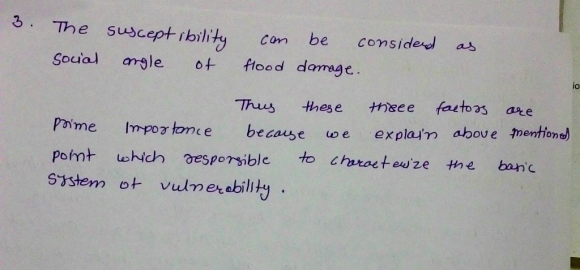 3. The susceptibility can be considerd as
Social angle of flood damage.
Thus these three factors are
prime Importance because we explain above mentioned
point which responsible to characterize the basic
System of vulnerability.